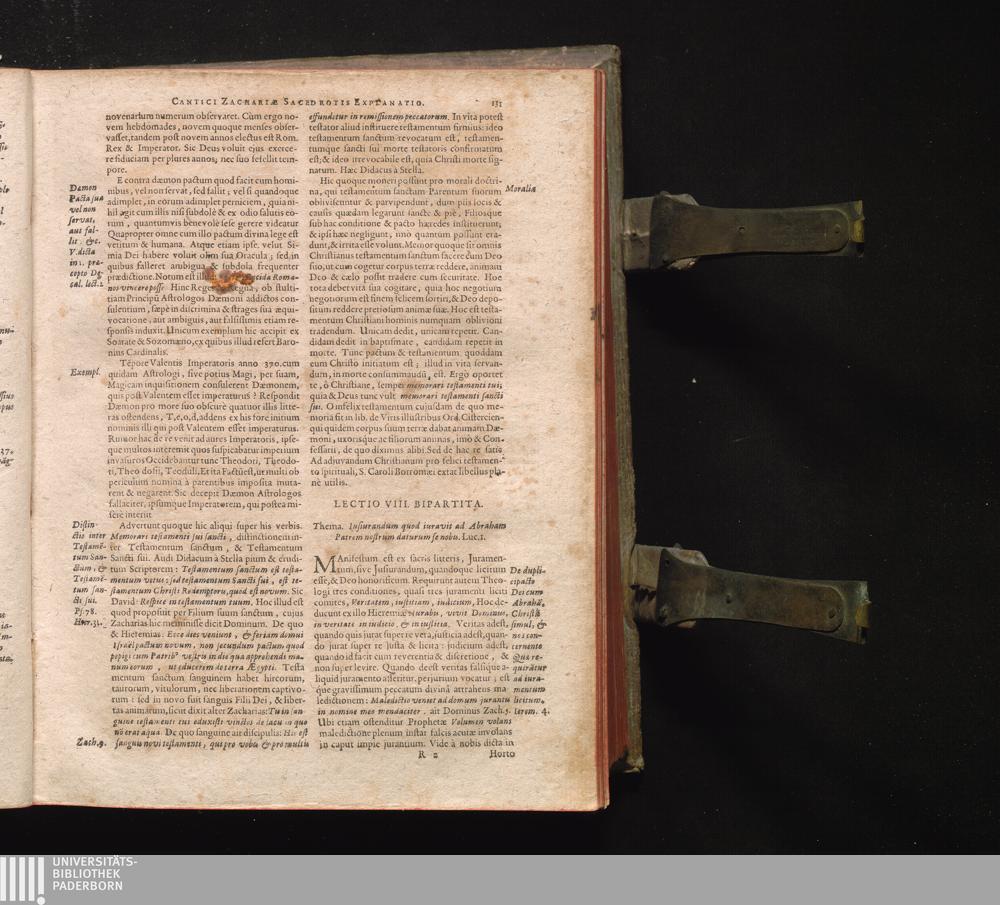 CANTICI ZACHARIÆ SACERDOTIS EXPLANATIO. 131
novenarium numerum observaret. Cùm ergo no-
vem hebdomades, novem quoque menses obser-
vasset, tandem post novem annos electus est Rom.
Rex & Imperator. Sic Deus voluit ejus exerce-
re fiduciam per plures annos, nec suo fefellit tem-
pore.
E contra dæmon pactum quod facit cum homi-
nibus, vel non servat, sed fallit; vel si quandoque
adimplet, in eorum adimplet perniciem, quia ni-
hil agit cum illis nisi subdolè & ex odio salutis eo-
rum, quantumvis benevolè sese gerere videatur
Quapropter omne cum illo pactum divina lege est
vetitum & humana. Atque etiam ipse velut Si-
mia Dei habere voluit olim sua Oracula; sed in
quibus falleret ambigua & subdola frequenter
prædictione. Notum est illud Roma-
nos vincere posse Hinc Reges Regna, ob stulti-
tiam Principū Astrologos Dæmoni addictos con-
sulentium, sæpè in discrimina & strages sua æqui-
vocatione, aut ambiguis, aut falsissimis etiam re-
sponsis induxit. Unicum exemplum hic accipit ex
Socrate & Sozomæno, ex quibus illud refert Baro-
nius Cardinalis.
Tēpore Valentis Imperatoris anno 370. cum
quidam Astrologi, sive potius Magi, per suam,
Magicam inquisitionem consulerent Dæmonem,
quis post Valentem esset imperaturus? Respondit
Dæmon pro more suo obscurè quatuor illis litte-
ras ostendens, T, e, o, d, addens ex his fore initium
nominis illi qui post Valentem esset imperaturus.
Rumor hac de re venit ad aures Imperatoris, ipse-
que multos interemit quos suspicabatur imperium
invasuros Occidebantur tunc Theodori, Theodo-
ti, Theodosii, Teoduli, Et ita Factū est, ut multi ob
periculum nomina à parentibus imposita muta-
rent & negarent. Sic decepit Dæmon Astrologos
fallaciter, ipsumque Imperatorem, qui postea mi-
serè interiit
Advertunt quoque hic aliqui super his verbis.
Memorari testamenti sui sancti, distinctionem in-
ter Testamentum sanctum, & Testamentum
Sancti sui. Audi Didacum à Stella pium & erudi-
tum Scriptorem: Testamentum sanctum est testa-
mentum vetus: sed testamentum Sancti sui, est te-
stamentum Christi Redemptoris, quod est novum. Sic
David: Respice in testamentum tuum. Hoc illud est
quod proposuit per Filium suum sanctum, cujus
Zacharias hic meminisse dicit Dominum. De quo
& Hieremias: Ecce dies veniunt, & feriam domui
Israël pactum novum, non secundum pactum quod
pepigi cum Patribꝰ vestris in die qua apprehendi ma-
num eorum, ut educerem de terra Ægypti. Testa
mentum sanctum sanguinem habet hircorum,
taurorum, vitulorum, nec liberationem captivo-
rum: sed in novo suit sanguis Filii Dei, & liber-
tas animarum, sicut dixit alter Zacharias: Tu in san-
guine testamenti tui eduxisti vinctos de lacu in quo
nō erat aqua. De quo sanguine ait discipulis: Hic est
sanguis novi testamenti, qui pro vobis & pro multis
Dæmon
Pacta sua
vel non
servat,
aut fal-
lit. &c.
V. dicta
in 1. præ-
cepto De-
cal. lect. 2
Exempl.
Distin-
ctio inter
Testamē-
tum San-
ctum, &
Testamē-
tum san-
cti sui.
Ps. 78.
Hier. 31.
Zach. 9.
effundetur in remissionem peccatorum. In vita potest
testator aliud instituere testamentum firmius: ideo
testamentum sanctum revocatum est, testamen-
tumque sancti sui morte testatoris confirmatum
est; & ideo irrevocabile est, quia Christi morte sig-
natum. Hæc Didacus à Stella.
Hic quoque moneri possunt pro morali doctri-
na, qui testamentum sanctum Parentum suorum
obliviscuntur & parvipendunt, dum piis locis &
causis quædam legarunt sanctè & piè, Filiosque
sub hac conditione & pacto hæredes instituerunt;
& ipsi hæc negligunt, imò quantum possunt era-
dunt, & irrita esse volunt. Memor quoque sit omnis
Christianus testamentum sanctum facere cum Deo
suo, ut cum cogetur corpus terræ reddere, animam
Deo & cælo possit tradere cum securitate. Hoc
tota debet vita sua cogitare, quia hoc negotium
negotiorum est finem felicem sortiri, & Deo depo-
situm reddere pretiosum animæ suæ. Hoc est testa-
mentum Christiani hominis numquam oblivioni
tradendum. Unicam dedit, unicam repetit. Can-
didam dedit in baptismate, candidam repetit in
morte. Tunc pactum & testamentum quoddam
cum Christo initiatum est; illud in vita servan-
dum, in morte consummandū, est. Ergò oportet
te, ô Christiane, semper memorari testamenti tui;
quia & Deus tunc vult memorari testamenti sancti
sui. O infelix testamentum cujusdam de quo me-
moria fit in lib. de Viris illustribus Ord. Cistercien-
qui quidem corpus suum terræ dabat animam Dæ-
moni, uxorisque ac filiorum animas, imò & Con-
fessarii, de quo diximus alibi. Sed de hac re satis
Ad adjuvandum Christianum pro felici testamen-
to spirituali, S. Caroli Borromæi extat libellus pla-
nè utilis.
LECTIO VIII. BIPARTITA.
Thema. Iusiurandum quod iuravit ad Abraham
Patrem nostrum daturum se nobis. Luc. 1.
MAnifestum est ex sacris litteris, Juramen-
tum, sive Jusjurandum, quandoque licitum
esse, & Deo honorificum. Requirunt autem Theo-
logi tres conditiones, quasi tres juramenti liciti
comites, Veritatem, iustitiam, iudicium, Hoc de-
ducunt ex illo Hieremiæ Iurabis, vivit Dominus,
in veritate in iudicio, & in iustitia. Veritas adest,
quando quis jurat super re vera, justicia adest, quan-
do jurat super re justa & licita: judicium adest,
quando id facit cum reverentia & discretione, &
non super levire. Quando deest veritas falsique a-
liquid juramento asseritur, perjurium vocatur; est
que gravissimum peccatum divinâ attrahens ma
ledictionem: Maledictio veniet ad domum jurantis
in nomine meo mendaciter. ait Dominus Zach. 5.
Ubi etiam ostenditur Prophetæ Volumen volans
maledictione plenum instar falcis acutæ involans
in caput impiè jurantium. Vide à nobis dicta in
R 2 Horto
Moralia
De dupli-
ci pacto
Dei cum
Abrahā,
Christū
simul, &
nos con-
cernente
Quæ re-
quirātur
ad jura-
mentum
licitum.
Ierem. 4.
UNIVERSITÄTS-
BIBLIOTHEK
PADERBORN